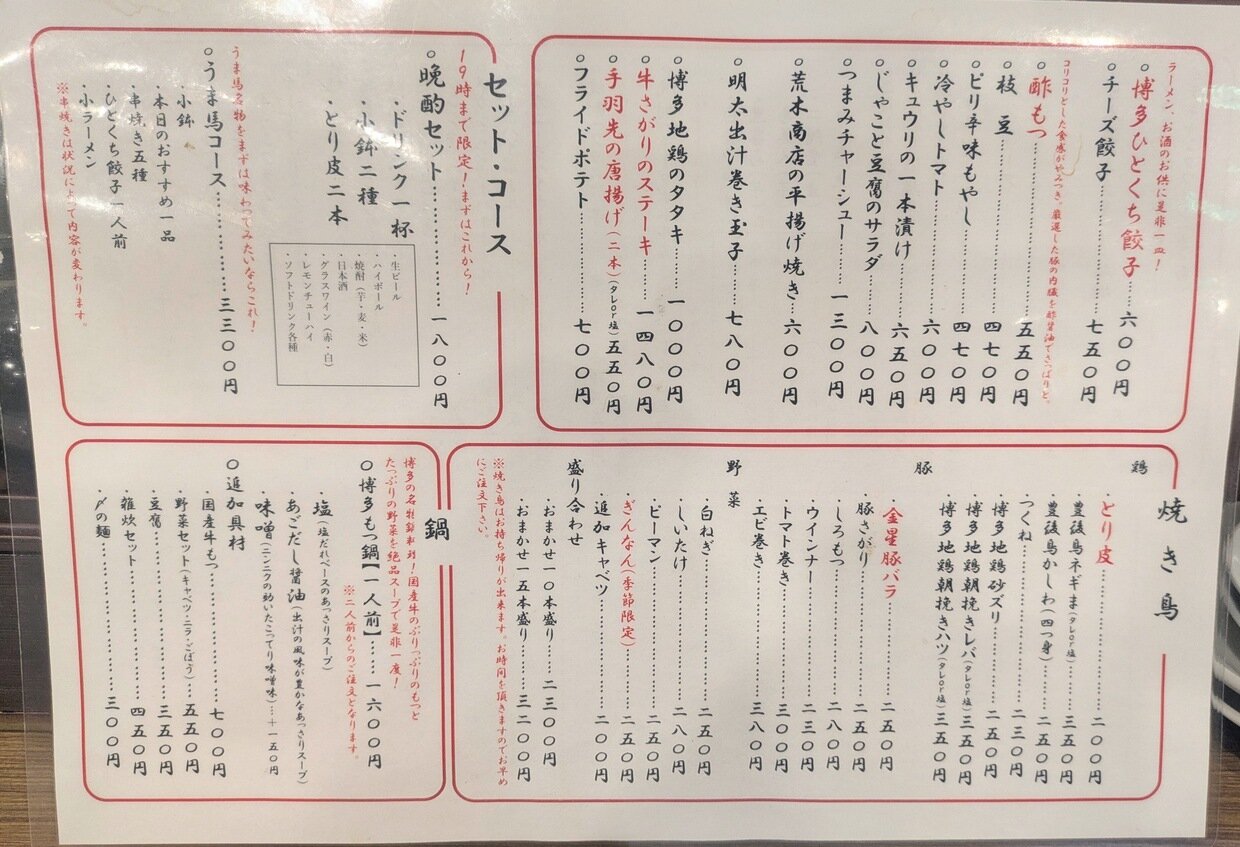 ラーメン、お酒のお供に是非一皿！
○博多ひとくち餃子……六〇〇円
○チーズ餃子……七五〇円
コリコリとした食感がやみつき。厳選した豚の内臓を酢醤油でさっぱりと。
○酢もつ……五五〇円
○枝豆……四七〇円
○ピリ辛味もやし……四七〇円
○冷やしトマト……六〇〇円
○キュウリの一本漬け……六五〇円
○じゃこと豆腐のサラダ……八〇〇円
○つまみチャーシュー……一三〇〇円
○荒木商店の平揚げ焼き……六〇〇円
○明太出汁巻き玉子……七八〇円
○博多地鶏のタタキ……一〇〇〇円
○牛さがりのステーキ……一四八〇円
○手羽先の唐揚げ（二本）（タレor塩）五五〇円
○フライドポテト……七〇〇円
セット・コース
19時まで限定！まずはこれから！
○晩酌セット……一八〇〇円
・ドリンク一杯
・小鉢二種
・とり皮二本
・生ビール
・ハイボール
・焼酎（芋・麦・米）
・日本酒
・グラスワイン（赤・白）
・レモンチューハイ
・ソフトドリンク各種
うま馬名物をまずは味わってみたいならこれ！
○うま馬コース……三三〇〇円
・小鉢
・本日のおすすめ一品
・串焼き五種
・ひとくち餃子一人前
・小ラーメン
※串焼きは状況によって内容が変わります。
焼き鳥
鶏
・とり皮……二〇〇円
・豊後鳥ネギま（タレor塩）……三五〇円
・豊後鳥かしわ（四つ身）……二五〇円
・つくね……二三〇円
・博多地鶏砂ズリ……二五〇円
・博多地鶏朝挽きレバ（タレor塩）三五〇円
・博多地鶏朝挽きハツ（タレor塩）三五〇円
豚
・金星豚バラ……二五〇円
・豚さがり……二五〇円
・しろもつ……二八〇円
・ウインナー……二三〇円
・トマト巻き……三〇〇円
・エビ巻き……三八〇円
野菜
・白ねぎ……二五〇円
・しいたけ……二八〇円
・ピーマン……二五〇円
・ぎんなん（季節限定）……二五〇円
・追加キャベツ……二〇〇円
盛り合わせ
・おまかせ一〇本盛り……二三〇〇円
・おまかせ一五本盛り……三二〇〇円
※焼き鳥はお持ち帰りが出来ます。お時間を頂きますのでお早め
にご注文下さい。
鍋
博多の名物鍋料理！国産牛のぷりっぷりのもつと
たっぷりの野菜を絶品スープで是非一度！
○博多もつ鍋【一人前】……一六〇〇円
※二人前からのご注文となります。
・塩（塩だれベースのあっさりスープ）
・あごだし醤油（出汁の風味が豊かなあっさりスープ）
・味噌（ニンニクの効いたこってり味噌味）…＋一五〇円
○追加具材
・国産牛もつ……七〇〇円
・野菜セット（キャベツ・ニラ・ごぼう）……五五〇円
・豆腐……三五〇円
・雑炊セット……四五〇円
・〆の麺……三〇〇円